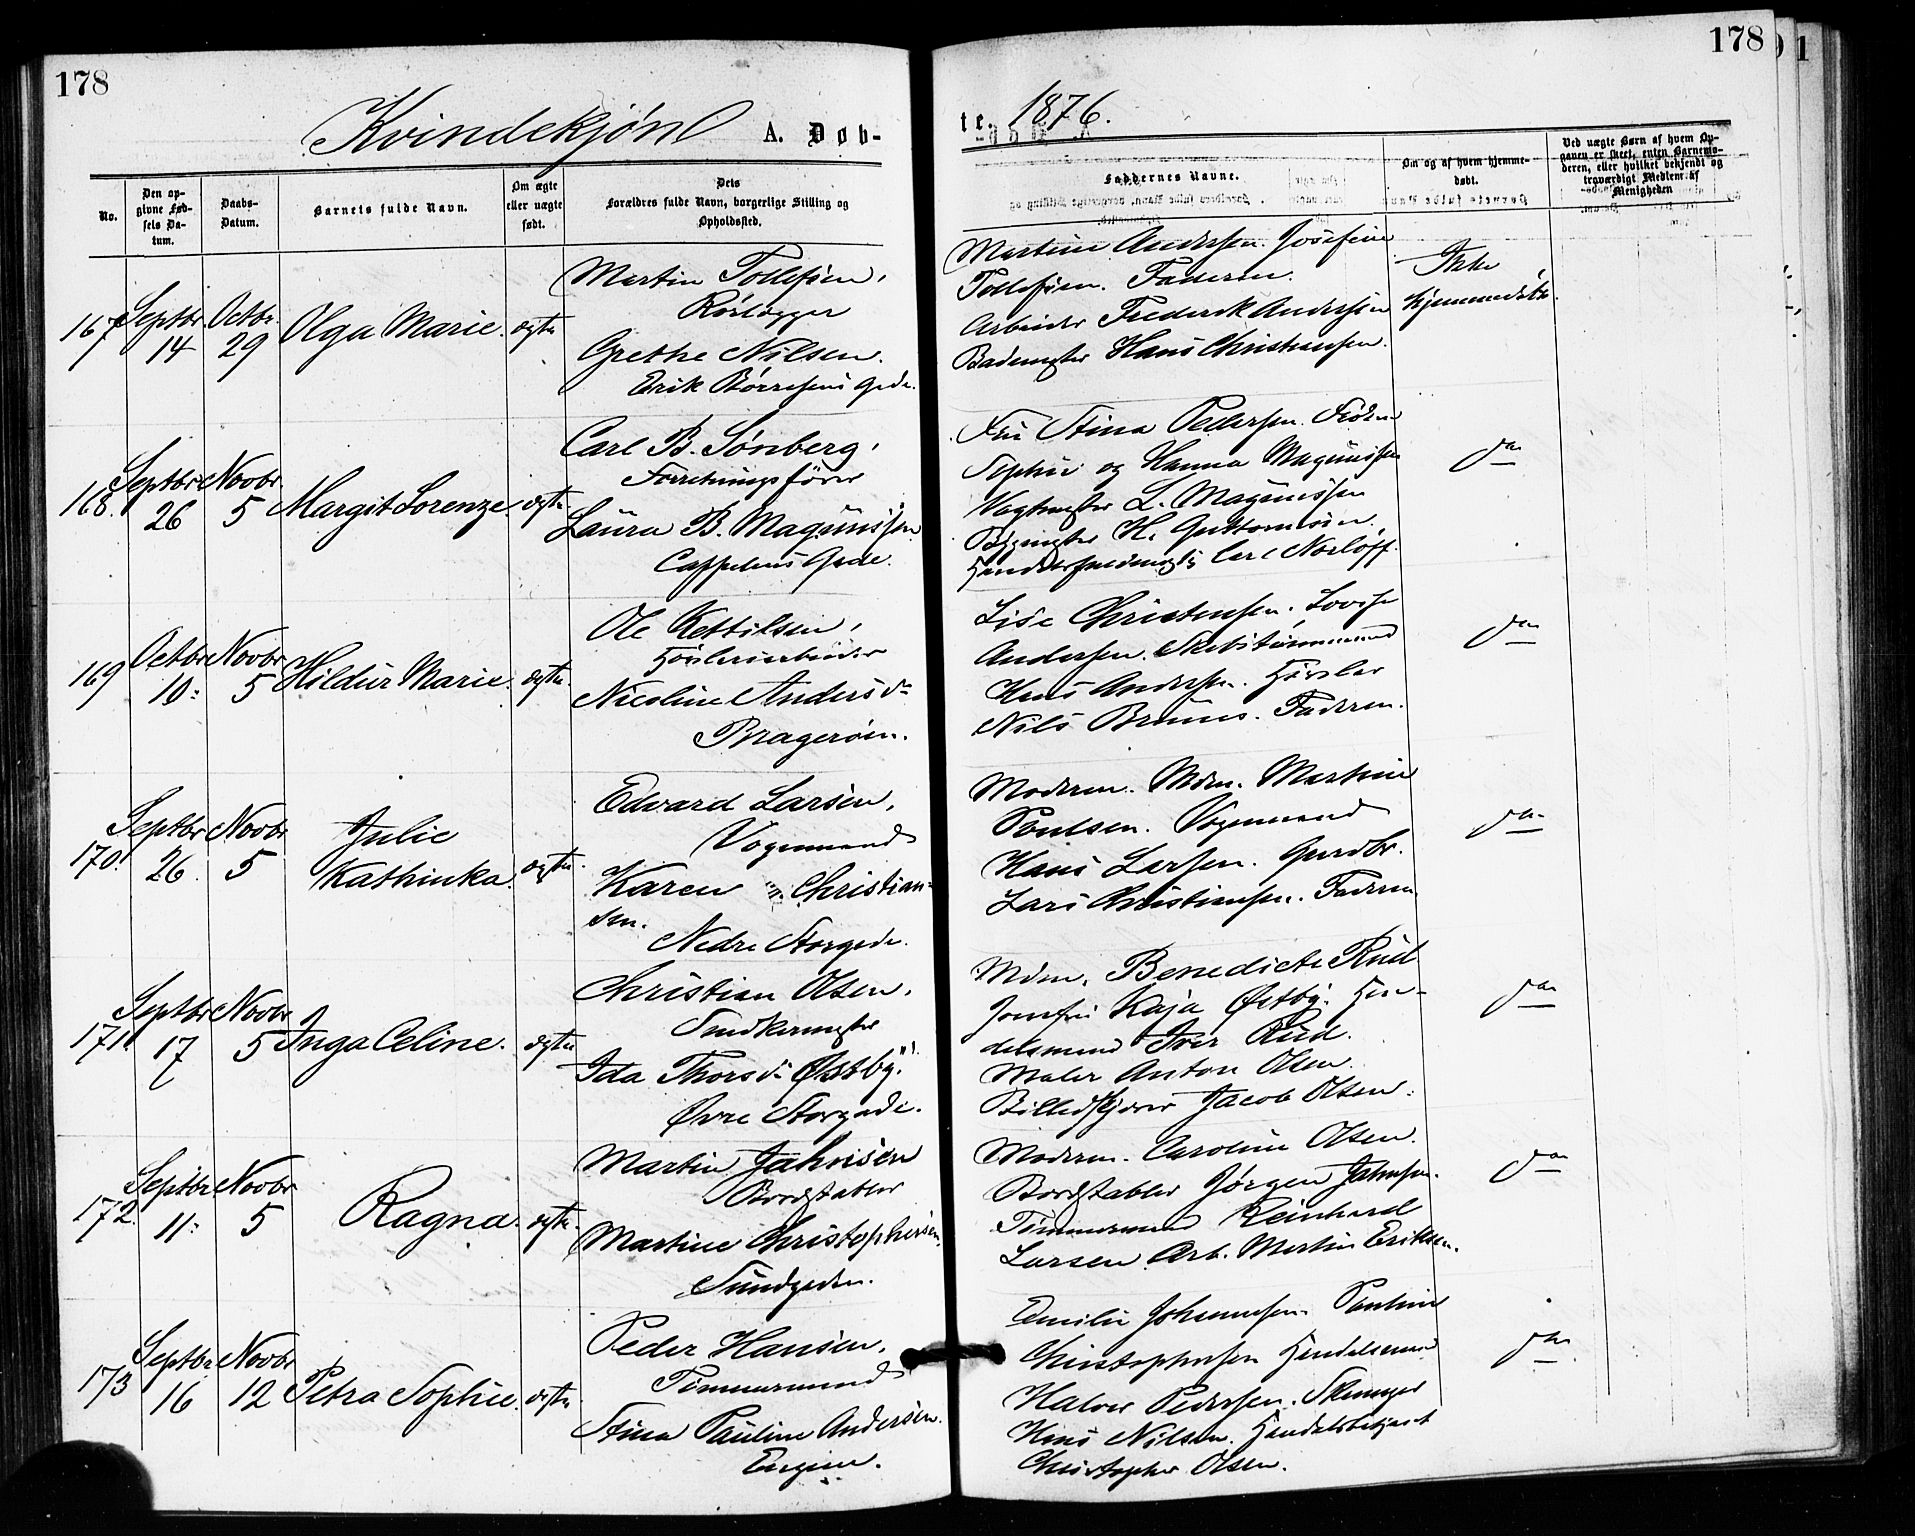 178
Kvindekjøn A. Døb-
No.
Den op-
givne Fød-
sels Da-
tum.
Daabs-
Datum.
Barnets fulde Navn.
Om ægte
eller uægte
født.
Dets
Forældres fulde Navn, borgerlige Stilling og
Opholdssted.
167 Septbr 14 Octbr. 29 Olga Marie. ægte
Martin Tollefsen,
Rørlægger
Grethe Nilsen.
Erik Børresens Gade.
168. Septbr 26 Novbr. 5 Margit Lorenze. ægte
Carl B. Sønberg,
Forretningsfører
Laura B. Magnussen
Cappelens Gade.
169 Octbr 10. Novbr 5 Hildur Marie. ægte.
Ole Kettilsen,
Nicoline Andersd.
Bragerøen.
170. Septbr 26. Novbr 5 Julie
Kathinka. ægte.
Edvard Larsen,
Vognmand
Karen Christian-
sen.
Nedre Storgade.
171. Septbr 17 Novbr 5 Inga Celine. ægte
Christian Olsen,
Snedkermester
Ida Thorsd. Østby.
Øvre Storgade.
172. Septbr. 11. Novbr 5 Ragna. ægte.
Martin Jahnsen
Bordstabler
Martine Christophersen.
Sundgaden.
173 Septbr. 16 Novbr 12 Petra Sophie. ægte
Peder Hansen,
Tømmermand
Stina Pauline Andersen.
Engene.
178
te. 1876.
Faddernes Navne.
Om og af hvem hjemme-
døbt.
Ved uægte Børn af hvem Op-
gaven er skeet, enten Barnemo-
deren, eller hvilket bekjendt og
troværdigt Medlem af
Menigheden
Martine Andersen. Josefine
Tollefsen. Faderen.
Arbeider Frederik Andersen
Bademester Hans Christiansen.
Ikke
hjemmedøbt.
Fru Stina Pedersen. Frøken
Sophie og Hanna Magnussen
Vagtmester L. Magnussen
Bygmester H. Guttormsen.
Carl Norløff.
do
Lise Christensen. Lovise
Andersen. Skibstømmermand
Hans Andersen. Høvler
Nils Bruus. Faderen.
do
Moderen. Mdm. Martine
Poulsen. Vognmand
Hans Larsen. Gaardbr.
Lars Christiansen. Faderen
do
Mdm. Benedicte Rud
Jomfru Kaja Østby. Han-
delsmand Iver Rud.
Maler Anton Olsen.
Billedskjærer Jacob Olsen.
do
Moderen. Caroline Olsen.
Bordstabler Jørgen Jahnsen.
Tømmermand Reinhard
Larsen Arb. Martin Eriksen.
do
Emilie Johannesen. Pauline
Christophersen Handelsmand
Halvor Pedersen.
Hans Nilsen. Handelsbetjent
Christopher Olsen.
do